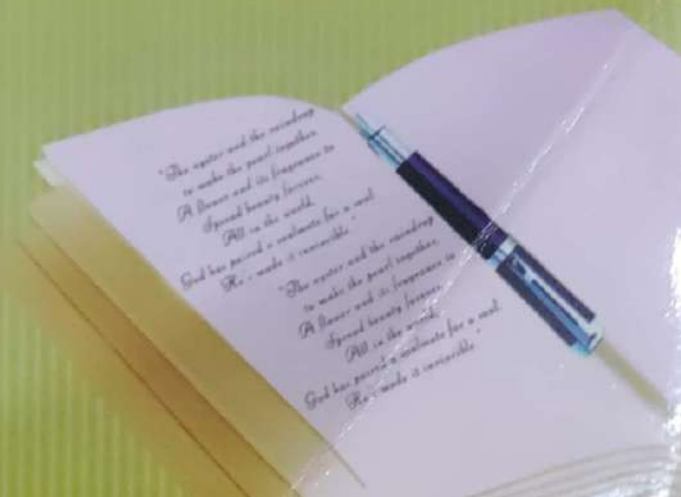 "The oyster and the raindrop
to make the pearl together,
A flower and its fragrance to
Spread beauty forever,
All in the world,
God has paired a soulmate for a soul
He made it invincible."
"The oyster and the raindrop
to make the pearl together,
A flower and its fragrance to
Spread beauty forever,
All in the world,
God has paired a soulmate for a soul
He made it invincible."